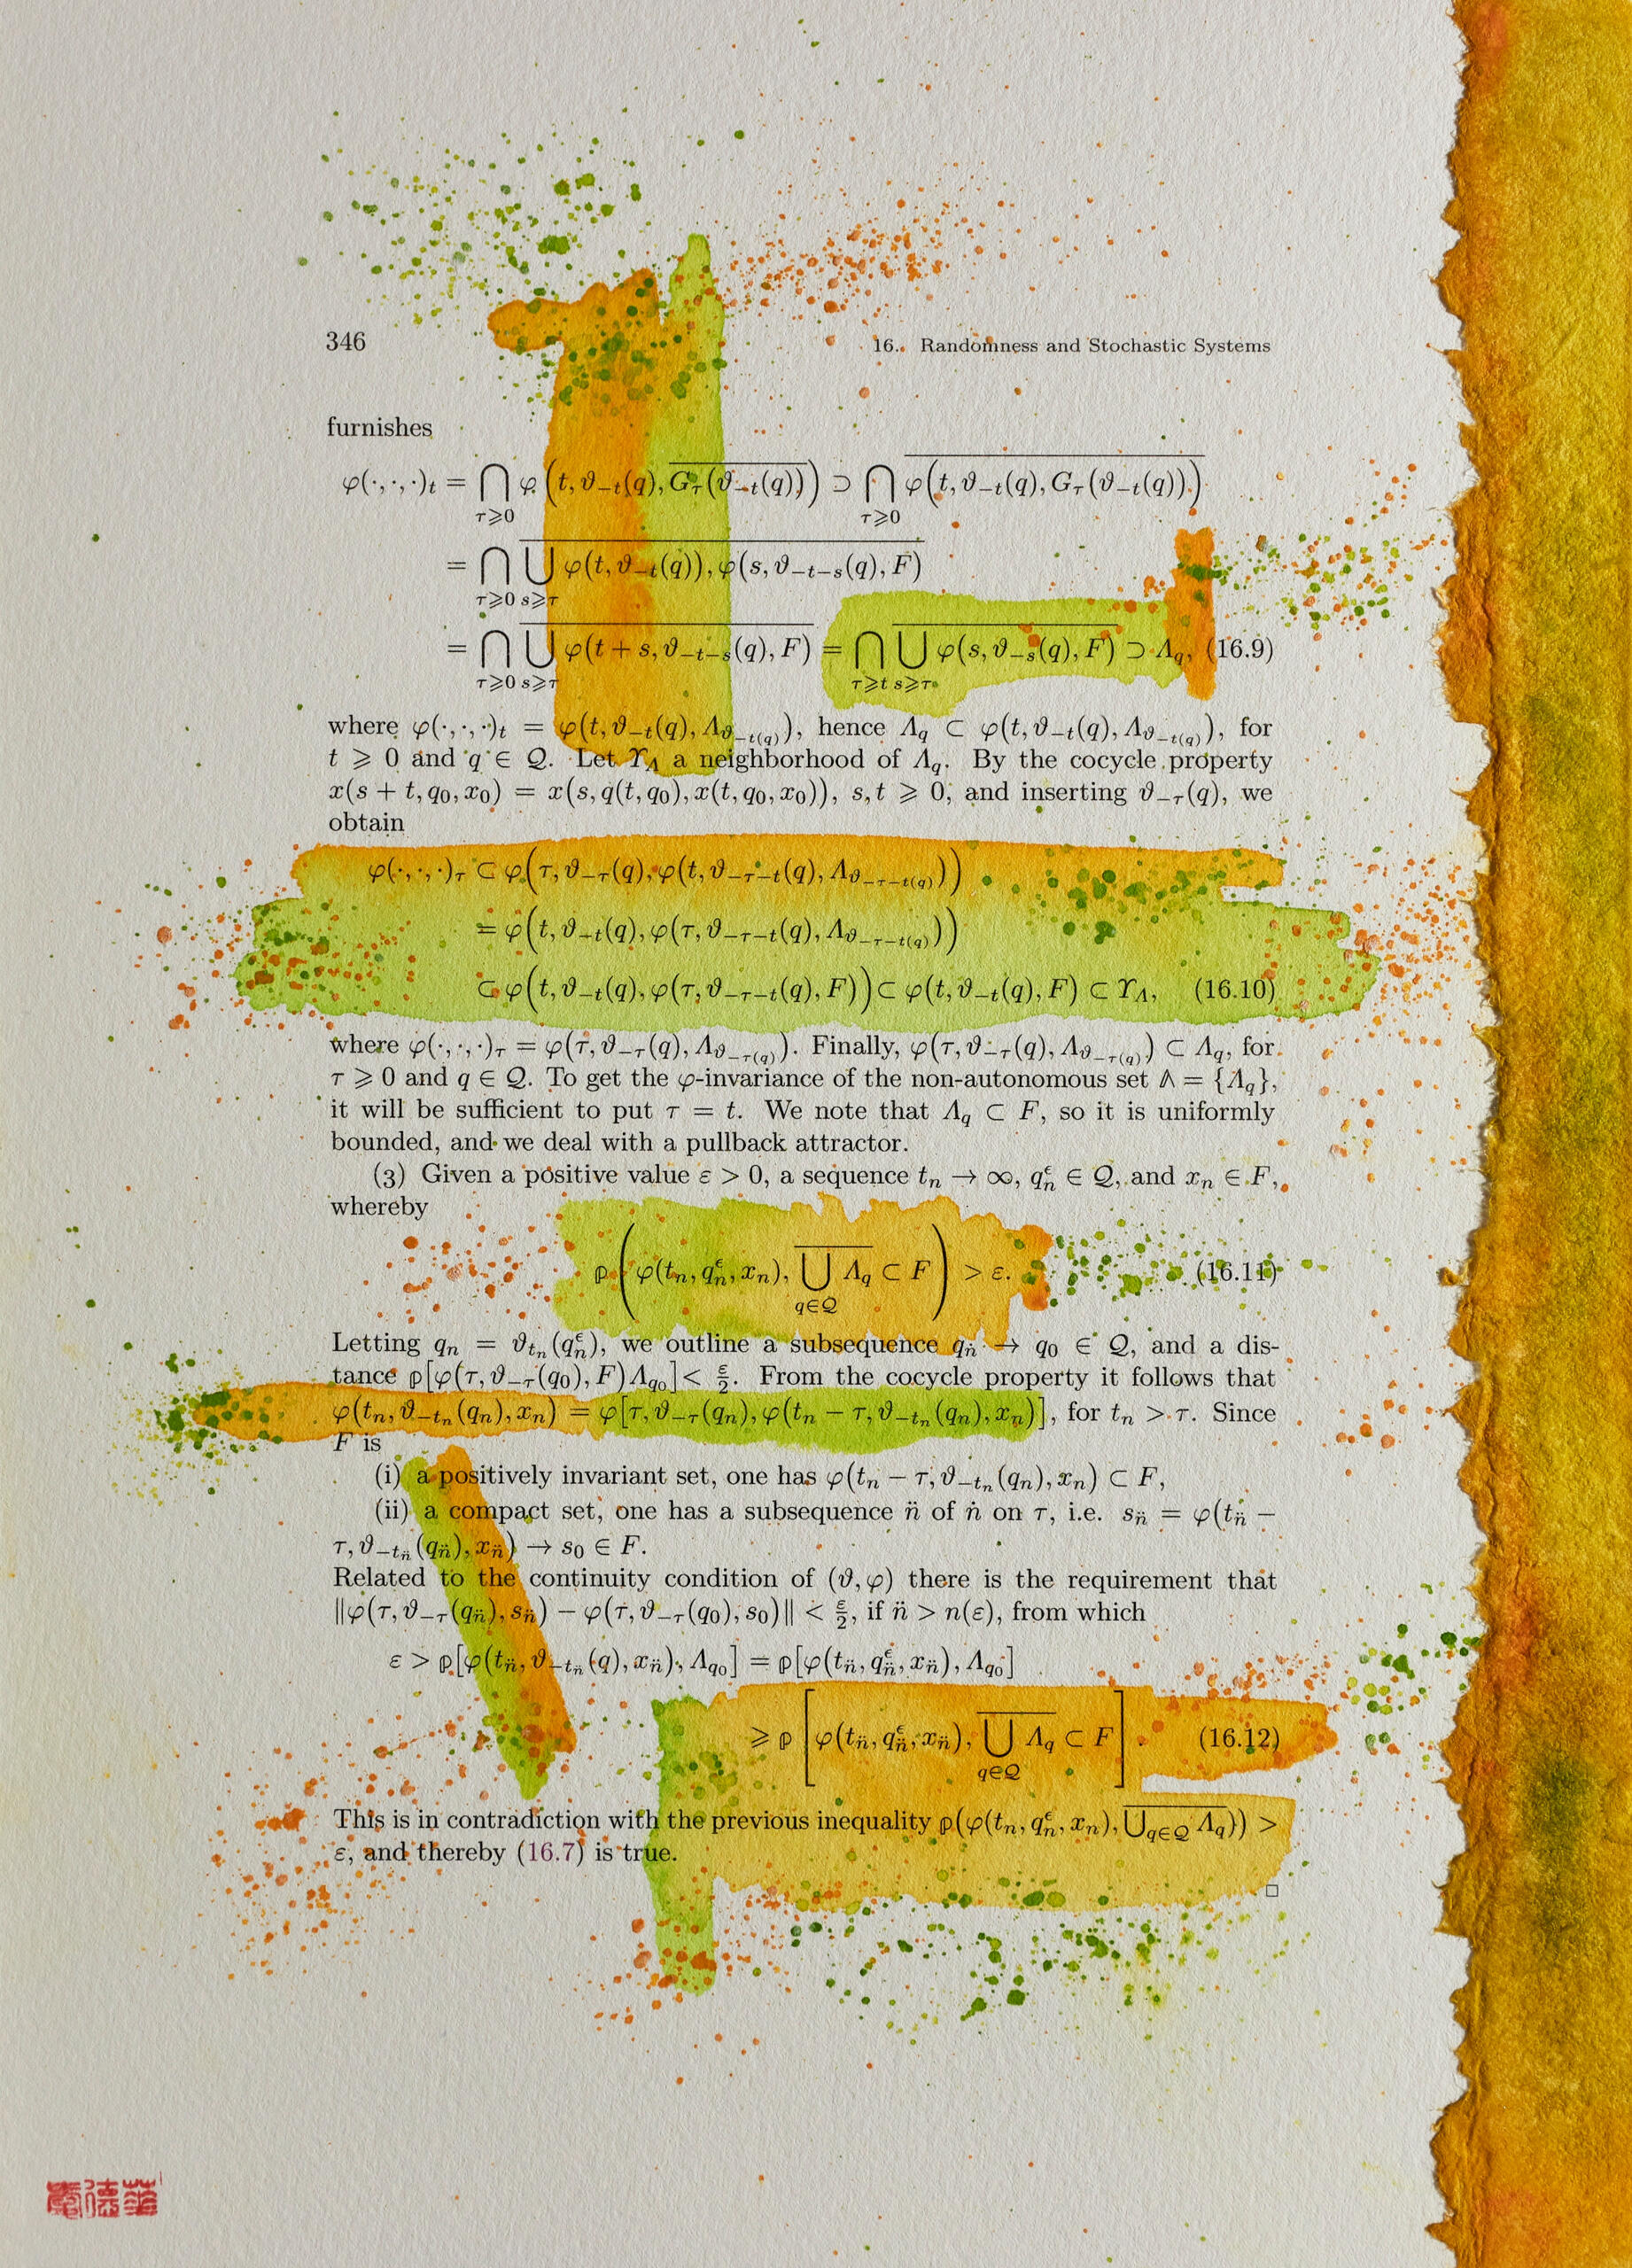 346
16. Randomness and Stochastic Systems
furnishes
φ(·,·,·)ₜ = ⋂_{τ⩾0} φ(t, ϑ₋ₜ(q), \overline{G_τ(ϑ₋ₜ(q))}) ⊃ ⋂_{τ⩾0} \overline{φ(t, ϑ₋ₜ(q), G_τ(ϑ₋ₜ(q)))}
= ⋂_{τ⩾0} \overline{⋃_{s⩾τ} φ(t, ϑ₋ₜ(q)), φ(s, ϑ_{−t−s}(q), F)}
= ⋂_{τ⩾0} \overline{⋃_{s⩾τ} φ(t + s, ϑ_{−t−s}(q), F)} = ⋂_{τ⩾t} \overline{⋃_{s⩾τ} φ(s, ϑ_{−s}(q), F)} ⊃ Λ_q, (16.9)
where φ(·,·,·)ₜ = φ(t, ϑ₋ₜ(q), Λ_{ϑ_{−t(q)}}), hence Λ_q ⊂ φ(t, ϑ₋ₜ(q), Λ_{ϑ_{−t(q)}}), for
t ⩾ 0 and q ∈ 𝒬. Let ϒ_Λ a neighborhood of Λ_q. By the cocycle property
x(s + t, q₀, x₀) = x(s, q(t, q₀), x(t, q₀, x₀)), s, t ⩾ 0, and inserting ϑ_{−τ}(q), we
obtain
φ(·,·,·)_τ ⊂ φ(τ, ϑ_{−τ}(q), φ(t, ϑ_{−τ−t}(q), Λ_{ϑ_{−τ−t(q)}}))
= φ(t, ϑ_{−t}(q), φ(τ, ϑ_{−τ−t}(q), Λ_{ϑ_{−τ−t(q)}}))
⊂ φ(t, ϑ_{−t}(q), φ(τ, ϑ_{−τ−t}(q), F)) ⊂ φ(t, ϑ_{−t}(q), F) ⊂ ϒ_Λ, (16.10)
where φ(·,·,·)_τ = φ(τ, ϑ_{−τ}(q), Λ_{ϑ_{−τ(q)}}). Finally, φ(τ, ϑ_{−τ}(q), Λ_{ϑ_{−τ(q)}}) ⊂ Λ_q, for
τ ⩾ 0 and q ∈ 𝒬. To get the φ-invariance of the non-autonomous set 𝔸 = {Λ_q},
it will be sufficient to put τ = t. We note that Λ_q ⊂ F, so it is uniformly
bounded, and we deal with a pullback attractor.
(3) Given a positive value ε > 0, a sequence tₙ → ∞, qₙ^ϵ ∈ 𝒬, and xₙ ∈ F,
whereby
℗(φ(tₙ, qₙ^ϵ, xₙ), \overline{⋃_{q∈𝒬} Λ_q} ⊂ F) > ε. (16.11)
Letting qₙ = ϑ_{tₙ}(qₙ^ϵ), we outline a subsequence q_ṅ → q₀ ∈ 𝒬, and a dis-
tance ℗[φ(τ, ϑ_{−τ}(q₀), F)Λ_{q₀}] < ε/2. From the cocycle property it follows that
φ(tₙ, ϑ_{−tₙ}(qₙ), xₙ) = φ[τ, ϑ_{−τ}(qₙ), φ(tₙ − τ, ϑ_{−tₙ}(qₙ), xₙ)], for tₙ > τ. Since
F is
(i) a positively invariant set, one has φ(tₙ − τ, ϑ_{−tₙ}(qₙ), xₙ) ⊂ F,
(ii) a compact set, one has a subsequence n̈ of ṅ on τ, i.e. s_n̈ = φ(t_n̈ −
τ, ϑ_{−t_n̈}(q_n̈), x_n̈) → s₀ ∈ F.
Related to the continuity condition of (ϑ, φ) there is the requirement that
‖φ(τ, ϑ_{−τ}(q_n̈), s_n̈) − φ(τ, ϑ_{−τ}(q₀), s₀)‖ < ε/2, if n̈ > n(ε), from which
ε > ℗[φ(t_n̈, ϑ_{−t_n̈}(q), x_n̈), Λ_{q₀}] = ℗[φ(t_n̈, q_n̈^ϵ, x_n̈), Λ_{q₀}]
⩾ ℗[φ(t_n̈, q_n̈^ϵ, x_n̈), \overline{⋃_{q∈𝒬} Λ_q} ⊂ F]. (16.12)
This is in contradiction with the previous inequality ℗(φ(tₙ, qₙ^ϵ, xₙ), \overline{⋃_{q∈𝒬} Λ_q})) >
ε, and thereby (16.7) is true.
□